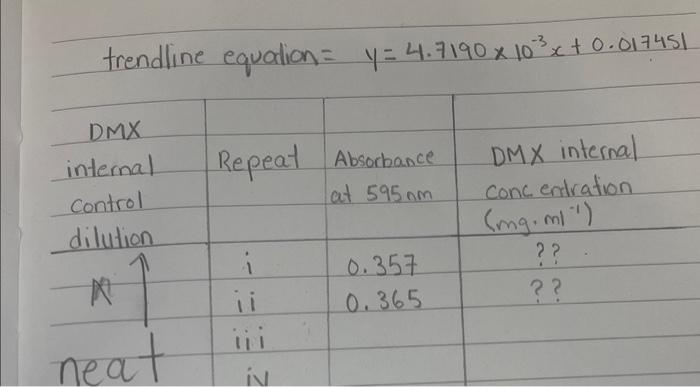 trendline equation= y = 4.7190 x 10⁻³x + 0.017451
DMX internal control dilution
Repeat
Absorbance at 595nm
DMX internal concentration (mg.ml⁻¹)
i 0.357 ??
ii 0.365 ??
iii
neat iv